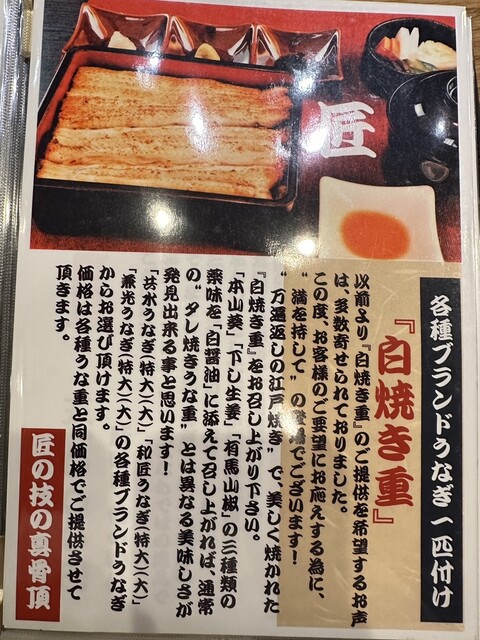 匠
各種ブランドうなぎ一匹付け
『白焼き重』
以前より『白焼き重』のご提供を希望するお声
は、多数寄せられておりました。
この度、お客様のご要望にお応えする為に、
“満を持して”の登場でございます！
“万遍返しの江戸焼き”で、美しく焼かれた
『白焼き重』をお召し上がり下さい。
「本山葵」「下し生姜」「有馬山椒」の三種類の
薬味を「白醤油」に添えて召し上がれば、通常
の“タレ焼きうな重”とは異なる美味しさが
発見出来る事と思います！
「共水うなぎ(特大一大)」「和匠うなぎ(特大一大)」
「兼光うなぎ(特大一大)」の各種ブランドうなぎ
からお選び頂けます。
価格は各種うな重と同価格でご提供させて
頂きます。
匠の技の真骨頂